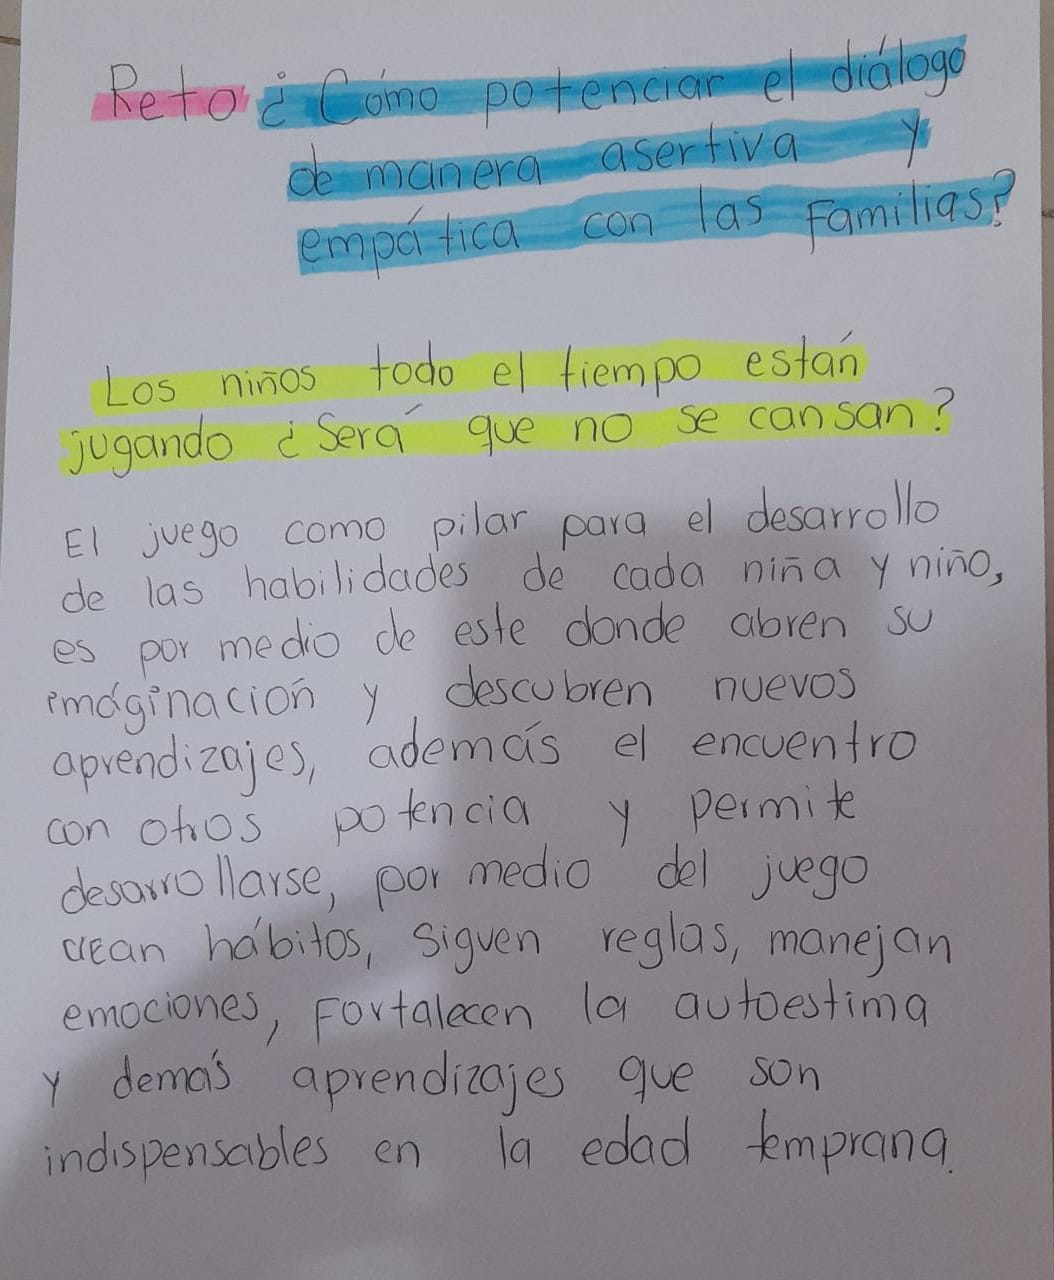 Reto ¿ Cómo potenciar el diálogo
de manera asertiva y
empática con las Familias?
Los niños todo el tiempo están
jugando ¿ Será que no se cansan?
El juego como pilar para el desarrollo
de las habilidades de cada niña y niño,
es por medio de este donde abren su
imaginación y descubren nuevos
aprendizajes, además el encuentro
con otros potencia y permite
desarrollarse, por medio del juego
crean hábitos, siguen reglas, manejan
emociones, Fortalecen la autoestima
y demás aprendizajes que son
indispensables en la edad temprana.